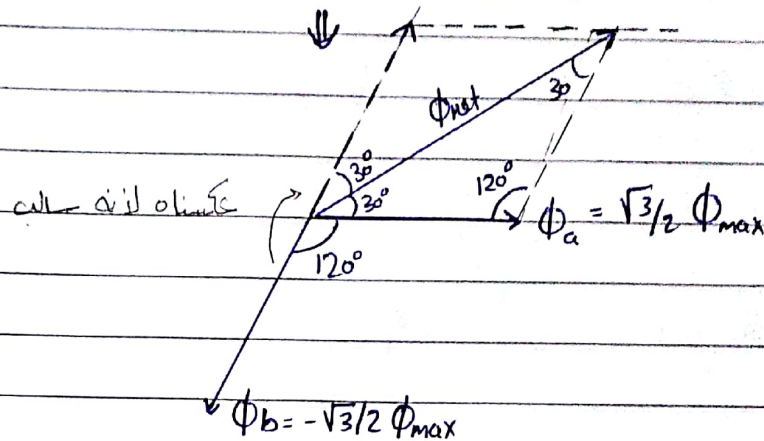 ⇓
ϕnet
30
30°
30°
120°
عكسناه لأنه سالب
ϕa = √3/2 ϕmax
120°
ϕb = -√3/2 ϕmax